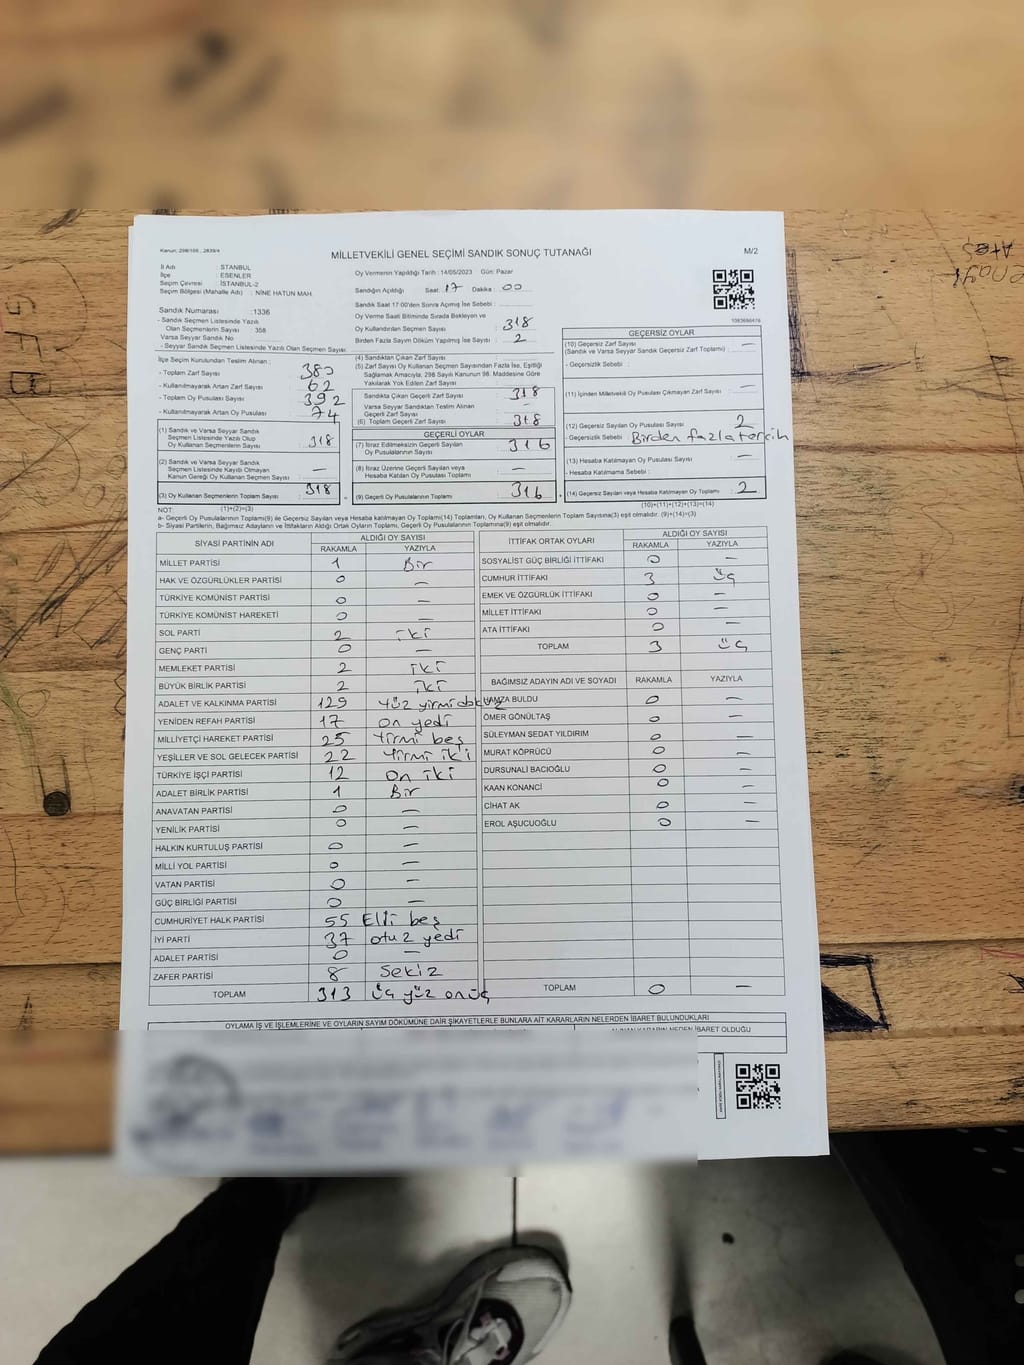 Kanun: 298/105 , 2839/4
MİLLETVEKİLİ GENEL SEÇİMİ SANDIK SONUÇ TUTANAĞI
M/2
İl Adı : STANBUL
İlçe : ESENLER
Seçim Çevresi : İSTANBUL-2
Seçim Bölgesi (Mahalle Adı) : NİNE HATUN MAH.
Sandık Numarası :1336
- Sandık Seçmen Listesinde Yazılı
Olan Seçmenlerin Sayısı : 358
Varsa Seyyar Sandık No
- Seyyar Sandık Seçmen Listesinde Yazılı Olan Seçmen Sayısı:
Oy Vermenin Yapıldığı Tarih : 14/05/2023 Gün: Pazar
Sandığın Açıldığı Saat : 17 Dakika : 00
Sandık Saat 17:00'den Sonra Açılmış İse Sebebi :
Oy Verme Saati Bitiminde Sırada Bekleyen ve
Oy Kullandırılan Seçmen Sayısı : 318
Birden Fazla Sayım Döküm Yapılmış İse Sayısı : 2
İlçe Seçim Kurulundan Teslim Alınan ;
- Toplam Zarf Sayısı : 380
- Kullanılmayarak Artan Zarf Sayısı : 62
- Toplam Oy Pusulası Sayısı : 392
- Kullanılmayarak Artan Oy Pusulası : 74
(1) Sandık ve Varsa Seyyar Sandık
Seçmen Listesinde Yazılı Olup
Oy Kullanan Seçmenlerin Sayısı : 318
(2) Sandık ve Varsa Seyyar Sandık
Seçmen Listesinde Kayıtlı Olmayan
Kanun Gereği Oy Kullanan Seçmen Sayısı : —
(3) Oy Kullanan Seçmenlerin Toplam Sayısı : 318
(4) Sandıktan Çıkan Zarf Sayısı :
(5) Zarf Sayısı Oy Kullanan Seçmen Sayısından Fazla İse, Eşitliği
Sağlamak Amacıyla, 298 Sayılı Kanunun 98. Maddesine Göre
Yakılarak Yok Edilen Zarf Sayısı
Sandıkta Çıkan Geçerli Zarf Sayısı : 318
Varsa Seyyar Sandıktan Teslim Alınan
Geçerli Zarf Sayısı : —
(6) Toplam Geçerli Zarf Sayısı : 318
GEÇERLİ OYLAR
(7) İtiraz Edilmeksizin Geçerli Sayılan
Oy Pusulalarının Sayısı : 316
(8) İtiraz Üzerine Geçerli Sayılan veya
Hesaba Katılan Oy Pusulası Toplamı : —
(9) Geçerli Oy Pusulalarının Toplamı : 316
1083698476
GEÇERSİZ OYLAR
(10) Geçersiz Zarf Sayısı : —
(Sandık ve Varsa Seyyar Sandık Geçersiz Zarf Toplamı)
- Geçersizlik Sebebi :
(11) İçinden Milletvekili Oy Pusulası Çıkmayan Zarf Sayısı : —
(12) Geçersiz Sayılan Oy Pusulası Sayısı : 2
- Geçersizlik Sebebi : Birden fazla tercih
(13) Hesaba Katılmayan Oy Pusulası Sayısı : —
- Hesaba Katılmama Sebebi :
(14) Geçersiz Sayılan veya Hesaba Katılmayan Oy Toplamı : 2
NOT: (1)+(2)=(3)
(10)+(11)+(12)+(13)=(14)
a- Geçerli Oy Pusulalarının Toplamı(9) ile Geçersiz Sayılan veya Hesaba katılmayan Oy Toplamı(14) Toplamları, Oy Kullanan Seçmenlerin Toplam Sayısına(3) eşit olmalıdır. (9)+(14)=(3)
b- Siyasi Partilerin, Bağımsız Adayların ve İttifakların Aldığı Ortak Oyların Toplamı, Geçerli Oy Pusulalarının Toplamına(9) eşit olmalıdır.
SİYASİ PARTİNİN ADI ALDIĞI OY SAYISI
RAKAMLA YAZIYLA
MİLLET PARTİSİ 1 Bir
HAK VE ÖZGÜRLÜKLER PARTİSİ 0 —
TÜRKİYE KOMÜNİST PARTİSİ 0 —
TÜRKİYE KOMÜNİST HAREKETİ 0 —
SOL PARTİ 2 iki
GENÇ PARTİ 0 —
MEMLEKET PARTİSİ 2 iki
BÜYÜK BİRLİK PARTİSİ 2 iki
ADALET VE KALKINMA PARTİSİ 129 Yüz yirmi dokuz
YENİDEN REFAH PARTİSİ 17 on yedi
MİLLİYETÇİ HAREKET PARTİSİ 25 Yirmi beş
YEŞİLLER VE SOL GELECEK PARTİSİ 22 Yirmi iki
TÜRKİYE İŞÇİ PARTİSİ 12 On iki
ADALET BİRLİK PARTİSİ 1 Bir
ANAVATAN PARTİSİ 0 —
YENİLİK PARTİSİ 0 —
HALKIN KURTULUŞ PARTİSİ 0 —
MİLLİ YOL PARTİSİ 0 —
VATAN PARTİSİ 0 —
GÜÇ BİRLİĞİ PARTİSİ 0 —
CUMHURİYET HALK PARTİSİ 55 Elli beş
İYİ PARTİ 37 otuz yedi
ADALET PARTİSİ 0 —
ZAFER PARTİSİ 8 Sekiz
TOPLAM 313 üç yüz onüç
İTTİFAK ORTAK OYLARI ALDIĞI OY SAYISI
RAKAMLA YAZIYLA
SOSYALİST GÜÇ BİRLİĞİ İTTİFAKI 0 —
CUMHUR İTTİFAKI 3 üç
EMEK VE ÖZGÜRLÜK İTTİFAKI 0 —
MİLLET İTTİFAKI 0 —
ATA İTTİFAKI 0 —
TOPLAM 3 üç
BAĞIMSIZ ADAYIN ADI VE SOYADI RAKAMLA YAZIYLA
HAMZA BULDU 0 —
ÖMER GÖNÜLTAŞ 0 —
SÜLEYMAN SEDAT YILDIRIM 0 —
MURAT KÖPRÜCÜ 0 —
DURSUNALİ BACIOĞLU 0 —
KAAN KONANCİ 0 —
CİHAT AK 0 —
EROL AŞUCUOĞLU 0 —
TOPLAM 0 —
OYLAMA İŞ VE İŞLEMLERİNE VE OYLARIN SAYIM DÖKÜMÜNE DAİR ŞİKAYETLERLE BUNLARA AİT KARARLARIN NELERDEN İBARET BULUNDUKLARI